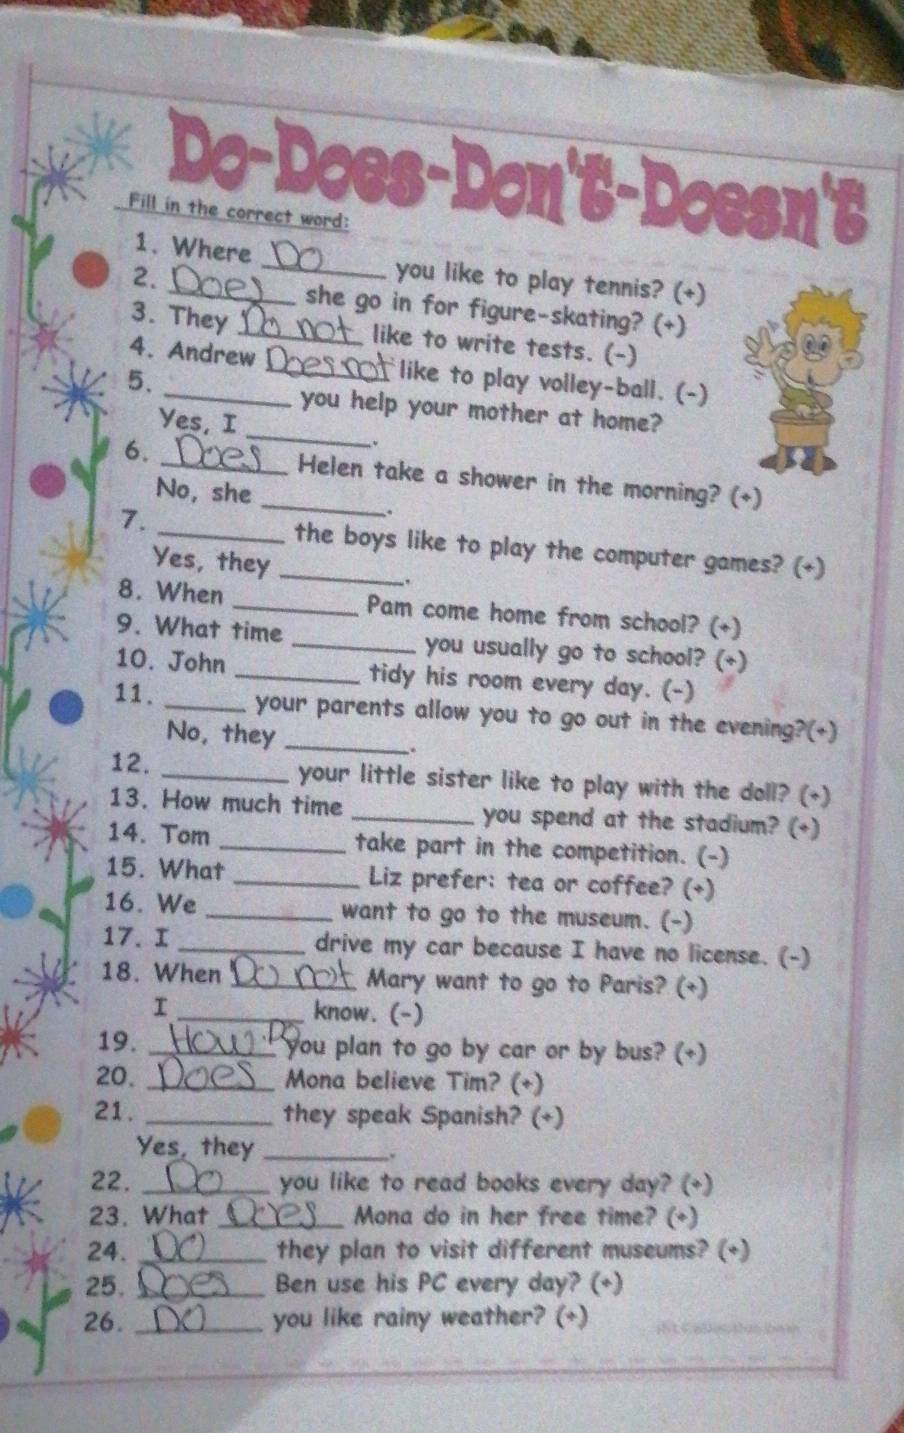 Do-Does-Don't-Doesn't
Fill in the correct word:
1. Where Do you like to play tennis? (+)
2. Does she go in for figure-skating? (+)
3. They Do not like to write tests. (-)
4. Andrew Does not like to play volley-ball. (-)
5. ________ you help your mother at home?
Yes, I ________.
6. Does Helen take a shower in the morning? (+)
No, she ________.
7. ________ the boys like to play the computer games? (+)
Yes, they ________.
8. When ________ Pam come home from school? (+)
9. What time ________ you usually go to school? (+)
10. John ________ tidy his room every day. (-)
11. _____ your parents allow you to go out in the evening?(+)
No, they ________.
12. ________ your little sister like to play with the doll? (+)
13. How much time ________ you spend at the stadium? (+)
14. Tom ________ take part in the competition. (-)
15. What ________ Liz prefer: tea or coffee? (+)
16. We ________ want to go to the museum. (-)
17. I ________ drive my car because I have no license. (-)
18. When Do not Mary want to go to Paris? (+)
I ________ know. (-)
19. How Do you plan to go by car or by bus? (+)
20. Does Mona believe Tim? (+)
21. ________ they speak Spanish? (+)
Yes, they ________.
22. Do you like to read books every day? (+)
23. What Does Mona do in her free time? (+)
24. Do they plan to visit different museums? (+)
25. Does Ben use his PC every day? (+)
26. Do you like rainy weather? (+)